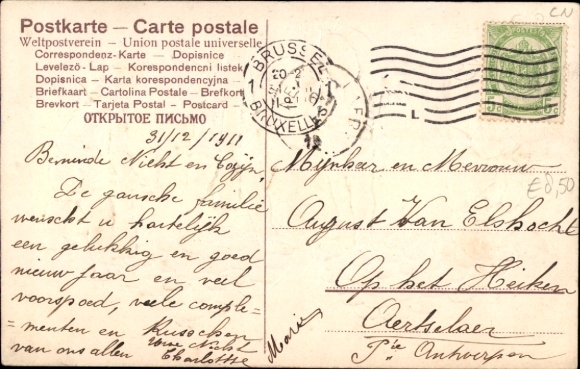 Postkarte — Carte postale
Weltpostverein - Union postale universelle
Correspondenz-Karte — Dopisnice
Levelező-Lap — Korespondencni listek
Dopisnica — Karta korespondencyjna -
Briefkaart - Cartolina Postale - Brefkort
Brevkort - Tarjeta Postal - Postcard -
ОТКРЫТОЕ ПИСЬМО
CN
BRUSSEL
20-2
1 1
BRUXELLES
L
31/12/1911
Beminde Nicht en
De gansche familie
wenscht u hartelijk
een gelukkig en goed
nieuw jaar en veel
voorspoed, vele comple=
=menten en Kusschen
van ons allen Uwe Nicht
Charlotte
Marie
Mijnhar en Mevrouw
£0,50
August Van Elshocht
Op het Heiken
Aertselaer
Pie Antwerpen